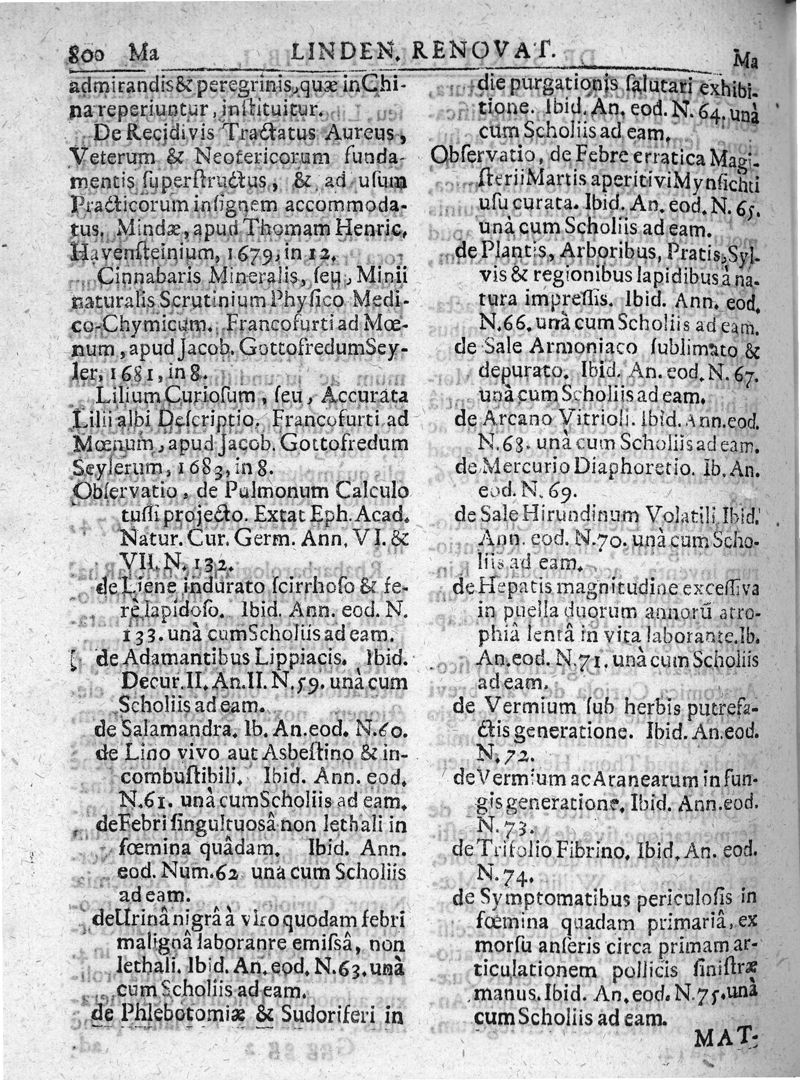 800 Ma LINDEN. RENOVAT. Ma
admirandis & peregrinis, quæ in Chi-
na reperiuntur, inſtituitur.
De Recidivis Tractatus Aureus,
Veterum & Neotericorum funda-
mentis ſuperſtructus, & ad uſum
Practicorum inſignem accommoda-
tus. Mindæ, apud Thomam Henric.
Havenſteinium, 1679, in 12.
Cinnabaris Mineralis, ſeu, Minii
naturalis Scrutinium Phyſico Medi-
co-Chymicum. Francofurti ad Mœ-
num, apud Jacob. Gottofredum Sey-
ler, 1681, in 8.
Lilium Curioſum, ſeu, Accurata
Lilii albi Deſcriptio. Francofurti ad
Mœnum, apud Jacob. Gottofredum
Seylerum, 1683, in 8.
Obſervatio, de Pulmonum Calculo
tuſſi projecto. Extat Eph. Acad.
Natur. Cur. Germ. Ann. VI. &
VII. N. 132.
de Liene indurato ſcirrhoſo & fe-
rè lapidoſo. Ibid. Ann. eod. N.
133. unà cum Scholiis ad eam.
[ de Adamantibus Lippiacis. Ibid.
Decur. II. An. II. N. 59. unà cum
Scholiis ad eam.
de Salamandra. Ib. An. eod. N. 60.
de Lino vivo aut Asbeſtino & in-
combuſtibili. Ibid. Ann. eod.
N. 61. unà cum Scholiis ad eam.
de Febri ſingultuosâ non lethali in
fœmina quâdam. Ibid. Ann.
eod. Num. 62 una cum Scholiis
ad eam.
de Urinâ nigrâ à viro quodam febri
malignâ laboranre emiſsâ, non
lethali. Ibid. An. eod. N. 63. unà
cum Scholiis ad eam.
de Phlebotomiæ & Sudoriferi in
die purgationis ſalutari exhibi-
tione. Ibid. An. eod. N. 64. unà
cum Scholiis ad eam.
Obſervatio, de Febre erratica Magi-
ſterii Martis aperitivi Mynſichti
uſu curata. Ibid. An. eod. N. 65.
unà cum Scholiis ad eam.
de Plantis, Arboribus, Pratis, Syl-
vis & regionibus lapidibus à na-
tura impreſſis. Ibid. Ann. eod.
N. 66. unà cum Scholiis ad eam.
de Sale Armoniaco ſublimato &
depurato. Ibid. An. eod. N. 67.
unà cum Scholiis ad eam.
de Arcano Vitrioli. Ibid. Ann. eod.
N. 68. unà cum Scholiis ad eam.
de Mercurio Diaphoretio. Ib. An.
eod. N. 69.
de Sale Hirundinum Volatili Ibid.
Ann. eod. N. 70. unà cum Scho-
liis ad eam.
de Hepatis magnitudine exceſſiva
in puella duorum annorū atro-
phiâ lentâ in vita laborante. Ib.
An. eod. N. 71. unà cum Scholiis
ad eam.
de Vermium ſub herbis putrefa-
ctis generatione. Ibid. An. eod.
N. 72.
de Vermium ac Aranearum in fun-
gis generatione. Ibid. Ann. eod.
N. 73.
de Trifolio Fibrino. Ibid. An. eod.
N. 74.
de Symptomatibus periculoſis in
fœmina quadam primariâ, ex
morſu anſeris circa primam ar-
ticulationem pollicis ſiniſtræ
manus. Ibid. An. eod. N. 75. unà
cum Scholiis ad eam.
MAT-